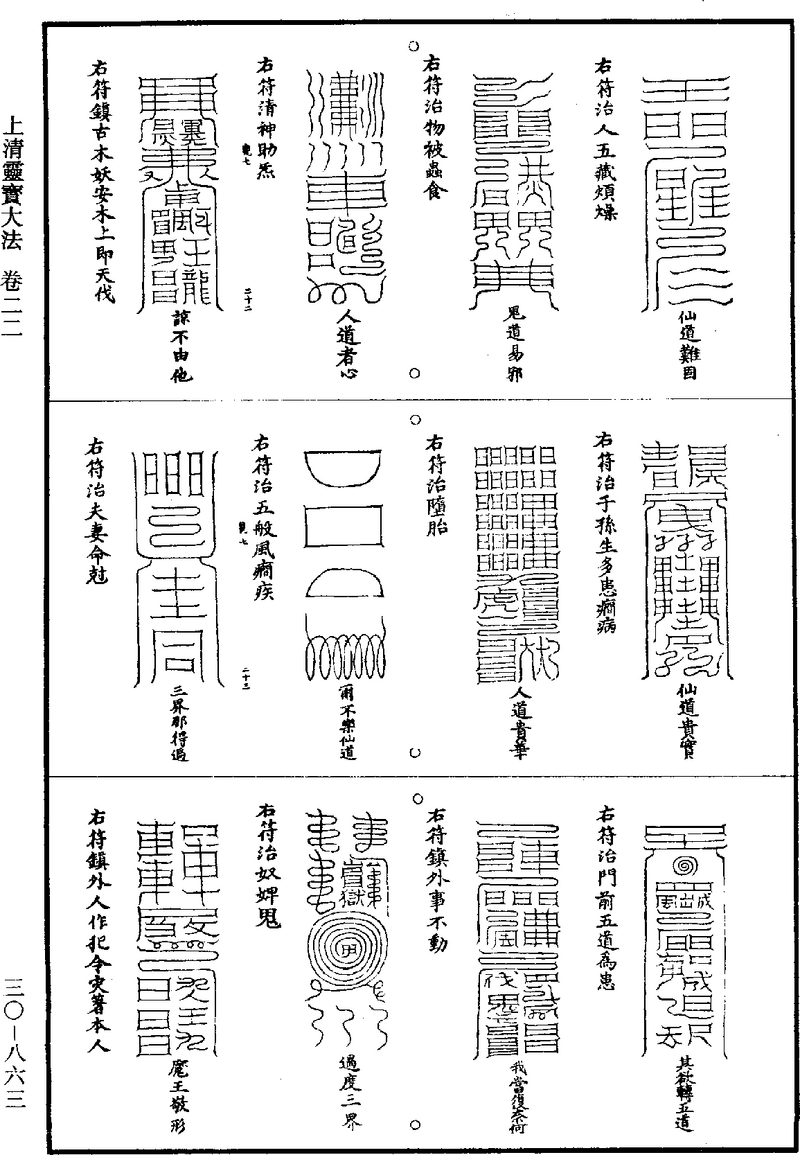 上清靈寶大法　卷二二
三〇—八六三
仙道難固
右符治人五藏煩燥
鬼道易邪
右符治物被蟲食
人道者心
右符清神助炁
二十二
諒不由他
右符鎮古木妖安木上即天伐
仙道貴實
右符治子孫生多患癎病
人道貴華
右符治墮胎
爾不樂仙道
右符治五般風癎疾
二十三
三界那得過
右符治夫妻命尅
其欲轉五道
右符治門前五道為患
我當復柰何
右符鎮外事不動
過度三界
右符治奴婢鬼
魔王敬形
右符鎮外人作犯令灾著本人